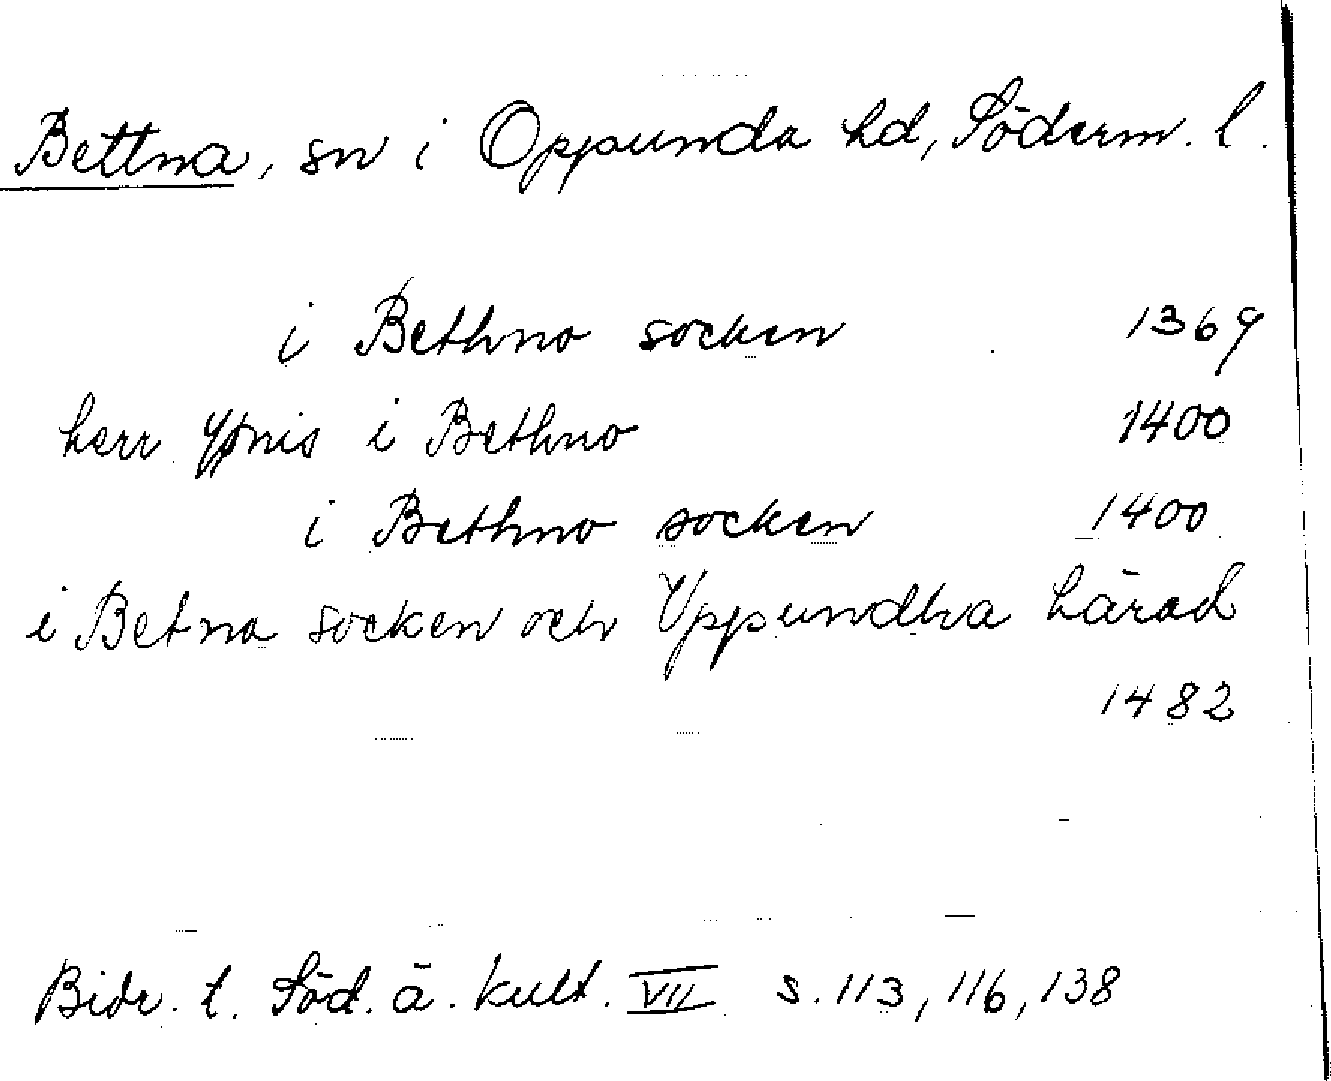 Bettna, sn i Oppunda hd, Söderm. l.
i Bethno socken 1369
herr Ypnis i Bethno 1400
i Bethno socken 1400
i Betna socken och Vppundha härad
1482
Bidr. t. Söd. ä. kult. VII s. 113, 116, 138